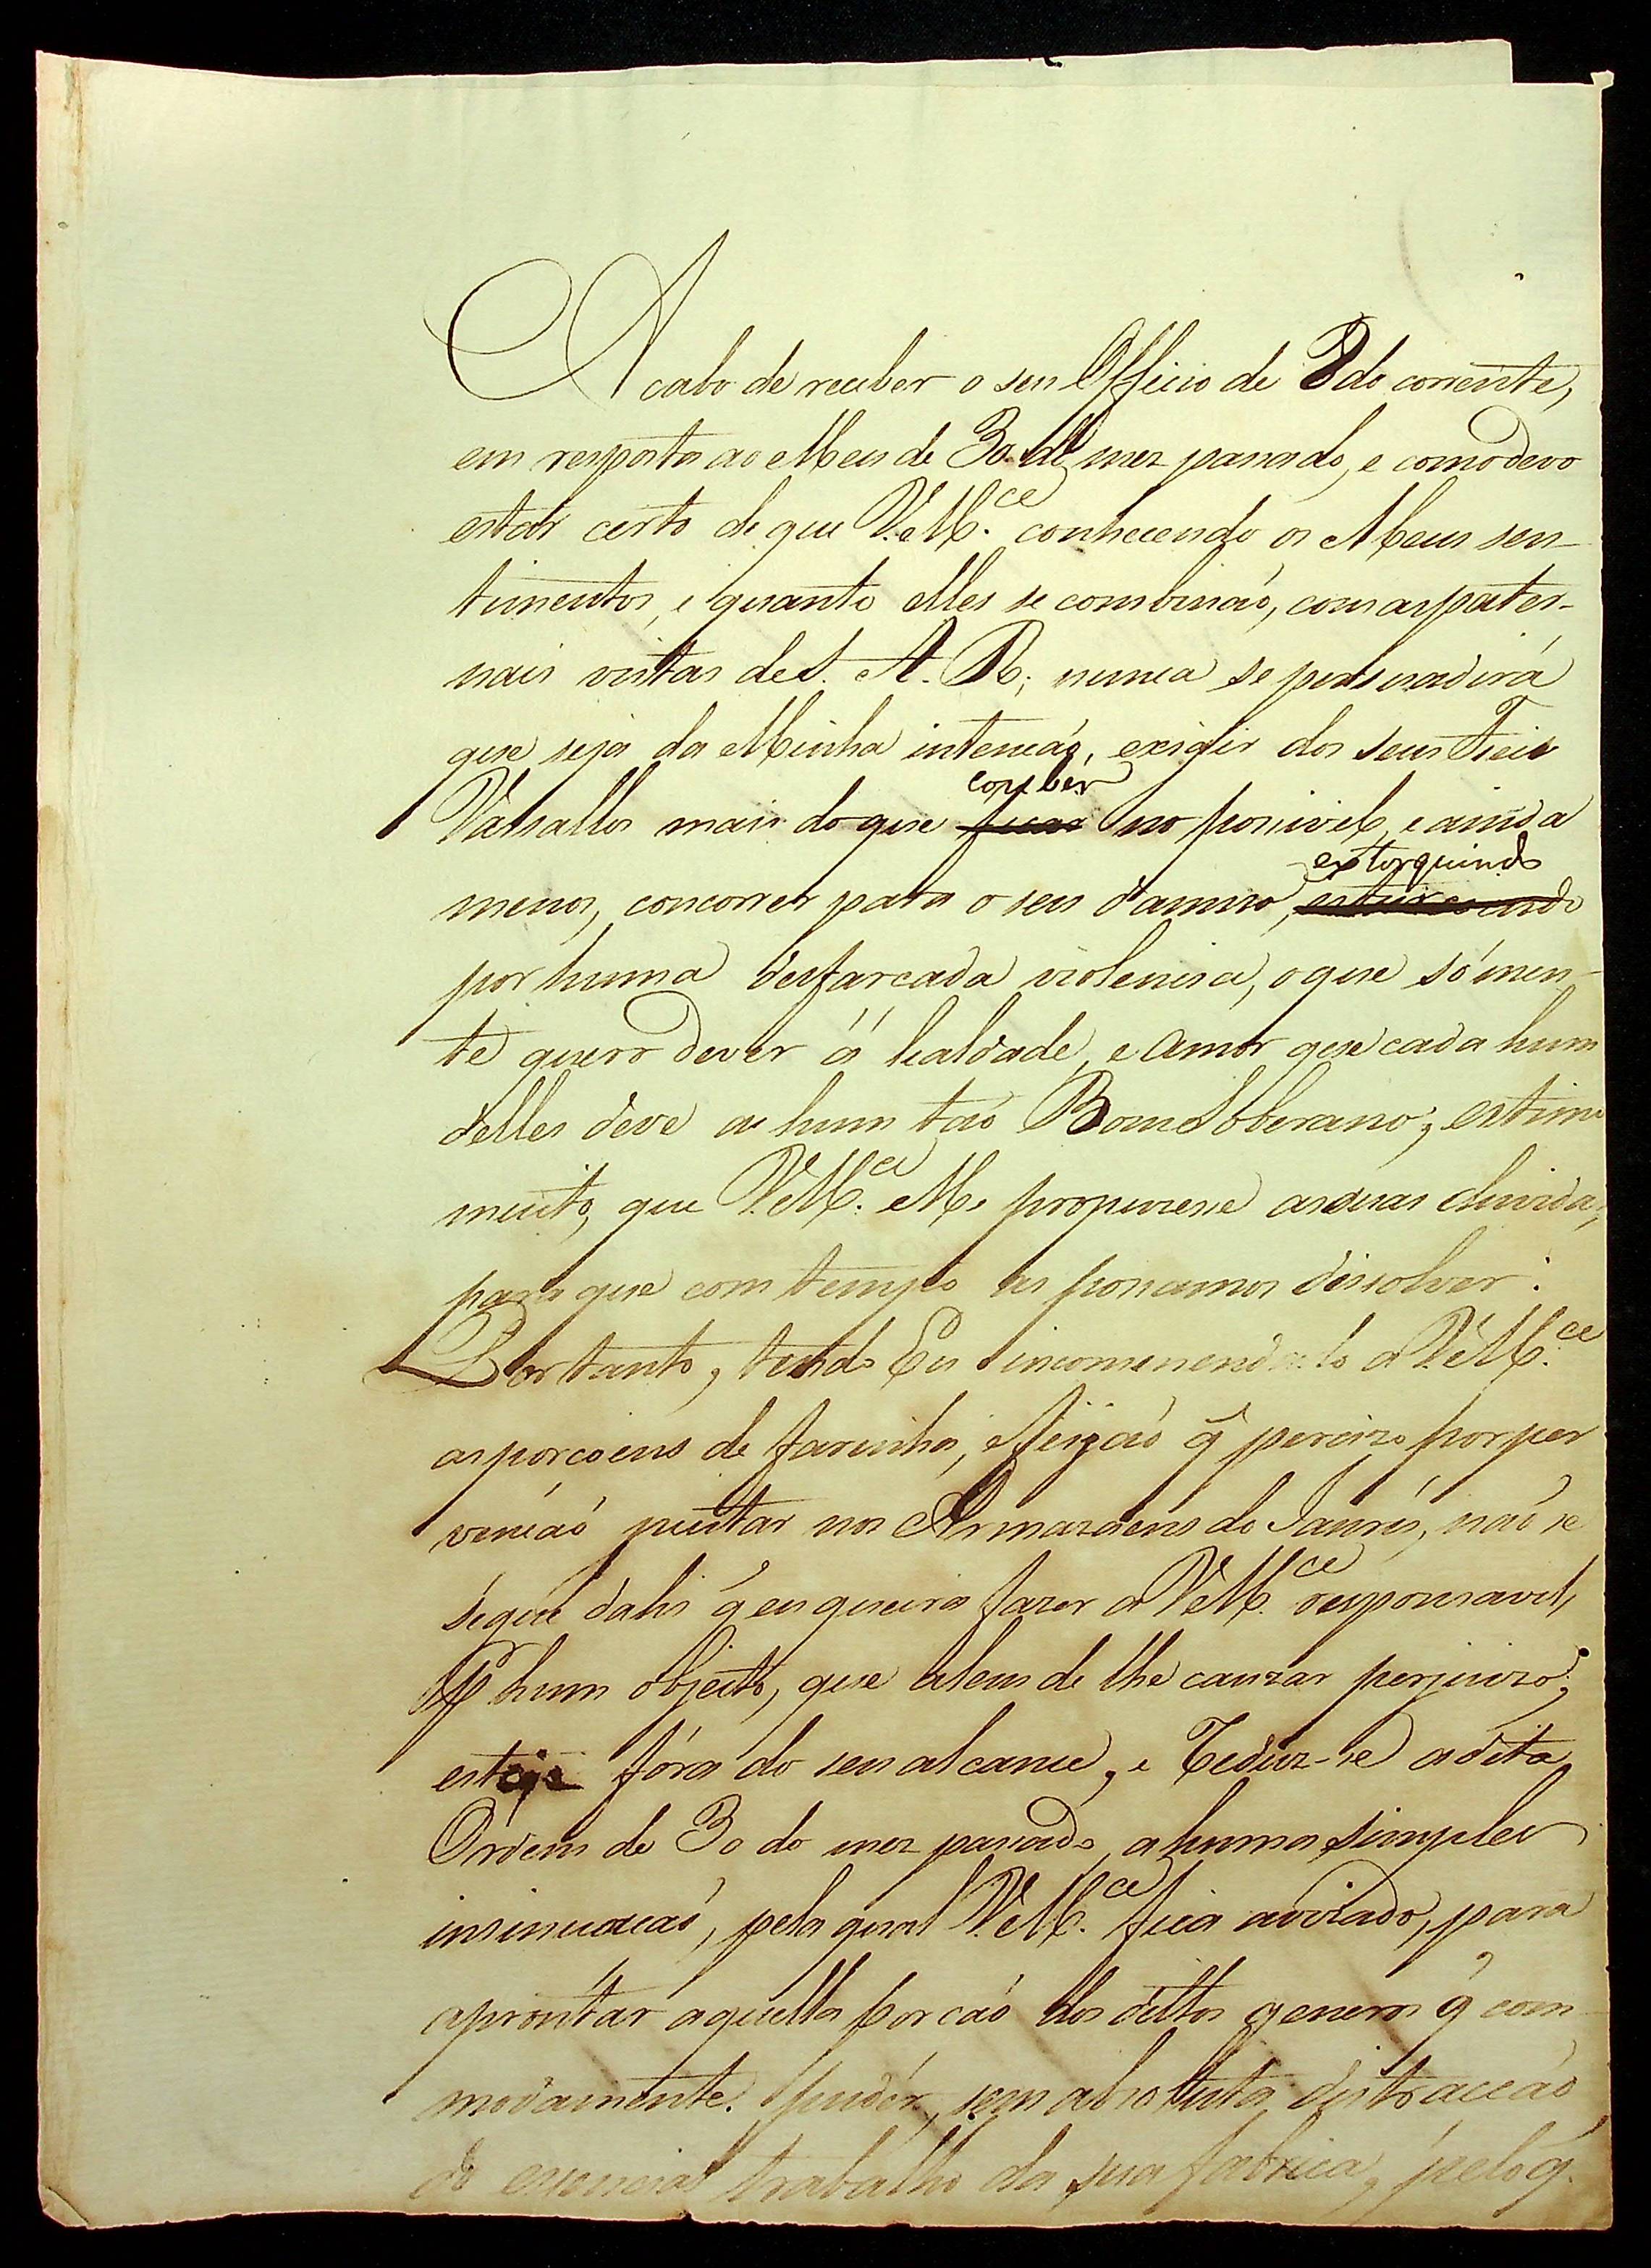 Acabo de receber o seu Officio de 8 do corrente,
em resposta ao Meu de 30 do mez passado, e como devo
estar certo de que V. M.ce conhecendo os Meus sen-
timentos, e quanto elles se combinaó, com as pater-
nais vistas de S. A. R; nunca se persuadirá
que seja da Minha intencaó, exigir dos seus Fieis
Vassallos mais do que couber no possivel, e ainda
menos, concorrer para o seu damno, extorquindo
por huma desfarcada violencia, o que sómen-
te quero dever á lealdade, e amor que cada hum
delles deve a hum taó Bom Soberano; estimo
muito, que V. M.ce Me propuzesse as suas duvidas,
para que com tempo as possamos dissolver:
Portanto, tendo Eu incommendado a V. M.ce
as porcoens de farinha, e feijaó q̃ percizo por per
vencaó juntar nos Armazaens do Jaurú, naó se
ségue dahi q̃ eu queira fazer a V. M.ce responsavel,
p.r hum objecto, que alem de lhe cauzar perjuizo;
esteja fóra do seu alcance, e Reduz-se a dita
Ordem de 30 do mez passado, a huma simples
insinuacaó, pela qual V. M.ce fica avizado, para
aprontar aquella porcaó dos dittos generos q̃ com-
modamente pudér, sem absoluta distraccaó
do essencial trabalho da sua fabrica, pelo q̃